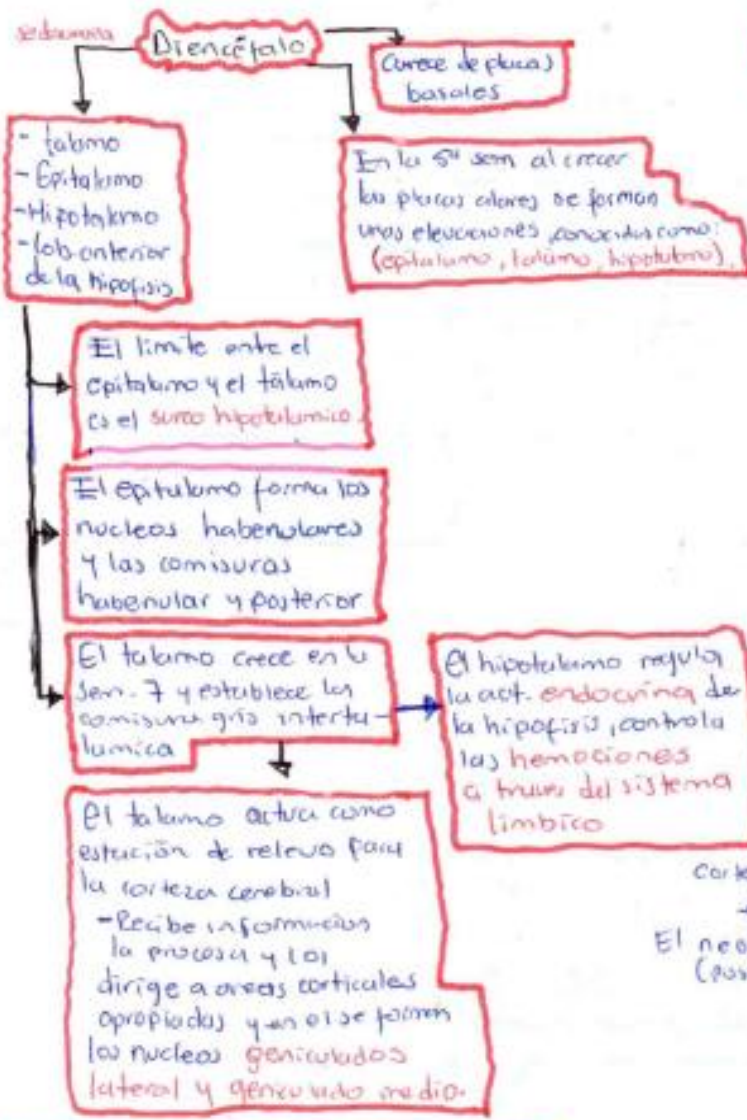 Diencéfalo
Carece de placas
basales
- talamo
- Epitalamo
- Hipotalamo
- lob. anterior
de la hipofisis
En la 5ª sem al crecer
las placas alares se forman
unas elevaciones, conocidas como:
(epitalamo, talamo, hipotalamo).
El limite ente el
epitalamo y el tálamo
es el surco hipotalamico.
El epitalamo forma los
nucleos habenulares
y las comisuras
habenular y posterior
El talamo crece en la
sem. 7 y establece la
comisura gris interta-
lamica
El hipotalamo regula
la act. endocrina de
la hipofisis, controla
las hemociones
a traves del sistema
limbico
El talamo actua como
estación de relevo para
la corteza cerebral
- Recibe informacion
la procesa y los
dirige a areas corticales
apropiadas y en el se forman
los nucleos geniculados
lateral y geniculado medio.
Corte
El neo